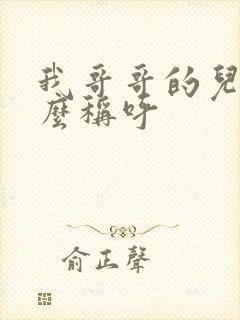 我哥哥的兒
麼稱呼
俞正聲